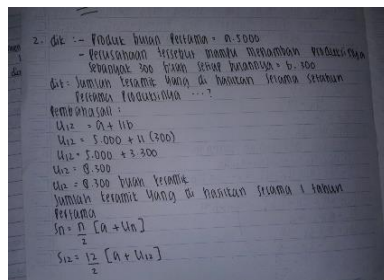 2. dik :- Produk bulan Pertama = a. 5000
- Perusahaan tersebut mampu menambah Produksinya
Sebanyak 300 buah setiap bulannya = b. 300
dit : Jumlah keramik yang di hasilkan selama setahun
Pertama Produksinya ...?
Pembahasan :
U12 = a + 11b
U12 = 5.000 + 11 (300)
U12 = 5.000 + 3.300
U12 = 8.300
U12 = 8.300 buah keramik
Jumlah keramik yang di hasilkan selama 1 tahun
Pertama
Sn = n/2 [a + Un]
S12 = 12/2 [a + U12]